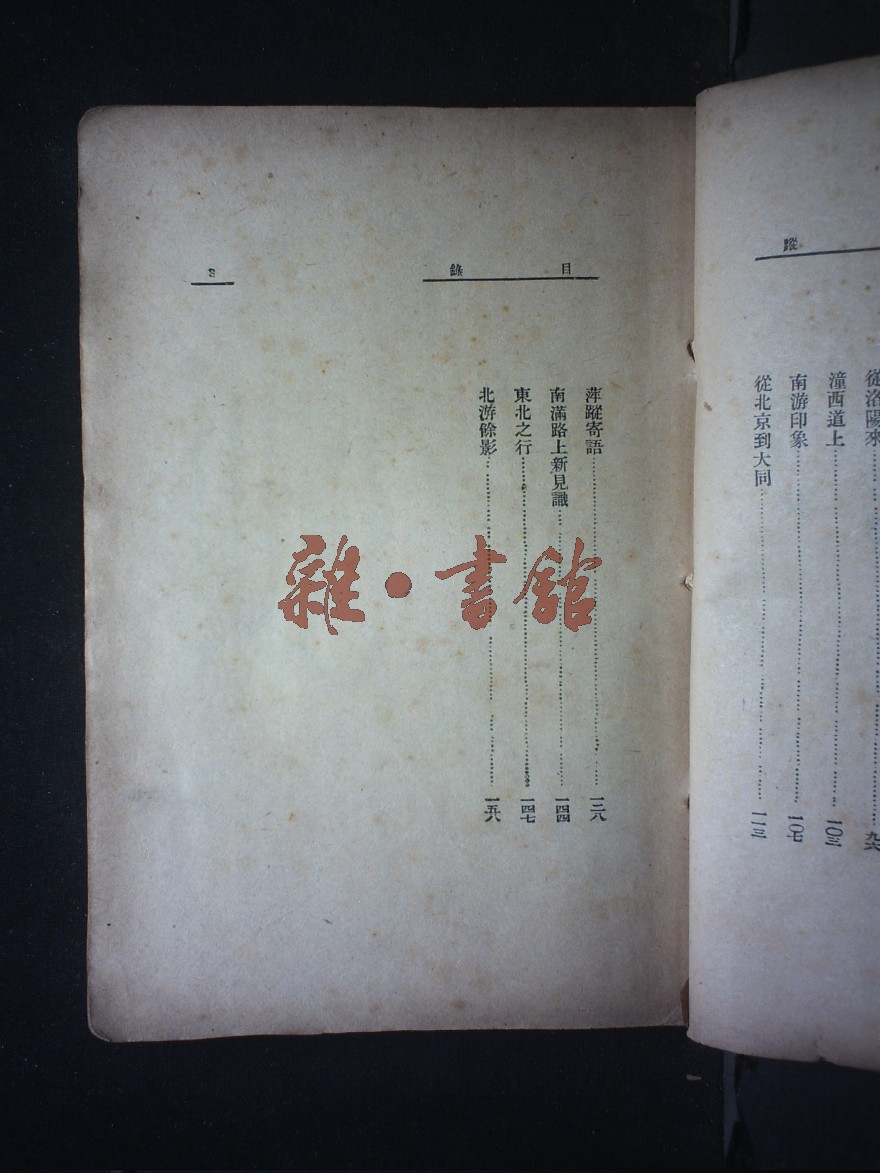 蹤
從洛陽來……九六
潼西道上……一〇三
南游印象……一〇七
從北京到大同……一一三
目錄
萍蹤寄語……一三八
南滿路上新見識……一四四
東北之行……一四七
北游餘影……一五八
3
雜·書館